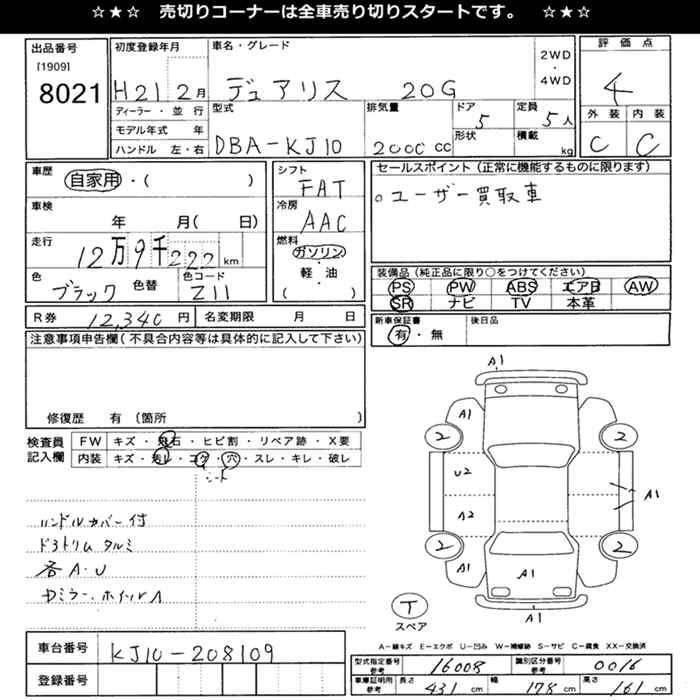 ☆★☆ 売切りコーナーは全車売り切りスタートです。 ☆★☆
出品番号 初度登録年月 車名・グレード 評価点
[1909]
8021
H21 2月 デュアリス 20G 2WD・4WD 4
ディーラー・並行 型式 排気量 ドア 5 定員 5人 外装 内装
モデル年式 年 DBA-KJ10 2000 CC 形状 積載 kg C C
ハンドル 左・右
車歴 自家用・( )
シフト FAT
セールスポイント(正常に機能するものに限ります)
○ユーザー買取車
車検 年 月( 日)
冷房 AAC
走行 12万9千222km
燃料 ガソリン・軽・油 ( )
色 ブラック 色替 色コード Z11
装備品(純正品に限り○をつけてください)
PS PW ABS エアB AW
SR ナビ TV 本革
R券 12,340円 名変期限 月 日
新車保証書 有・無 後日品
注意事項申告欄(不具合内容等は具体的に記入して下さい)
修復歴 有 (箇所 )
検査員記入欄
FW キズ・飛石・ヒビ割・リペア跡・X要
内装 キズ・汚レ・コゲ・穴・スレ・キレ・破レ
シート
ハンドルカバー付
ドアトリムタルミ
各A・U
ドミラー、ホイルA
A1
A1
2 2
U2
A1
A2
2 2
A1 A1
A1
T
スペア
A-線キズ E-エクボ U-凹み W-補修跡 S-サビ C-腐食 XX-交換済
車台番号 KJ10-208109
登録番号
型式指定番号参考 16008 識別区分番号参考 0016
車庫証明用参考 長さ 431cm 幅 178cm 高さ 161cm